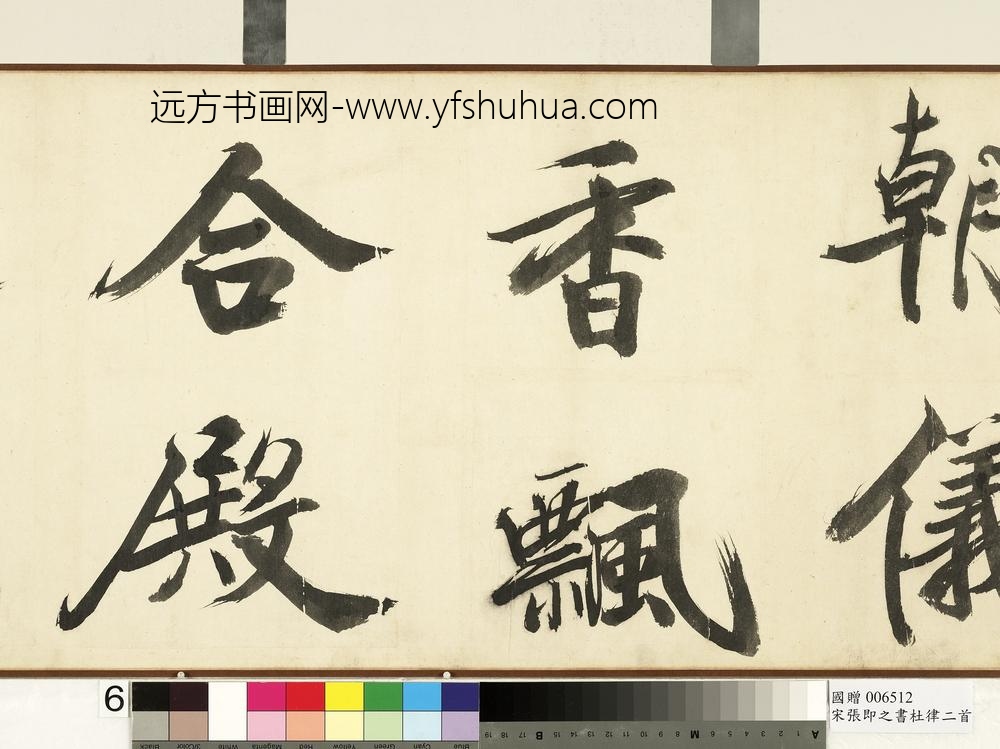 远方书画网-www.yfshuhua.com
朝儀
香飄
合殿
6
Black
3/Color
White
Magenta
Red
Yellow
Green
Cyan
Blue
19 18 17 16 15 B 14 13 12 11 10 9 8 M 7 6 5 4 3 2 1 A
國贈 006512
宋張即之書杜律二首